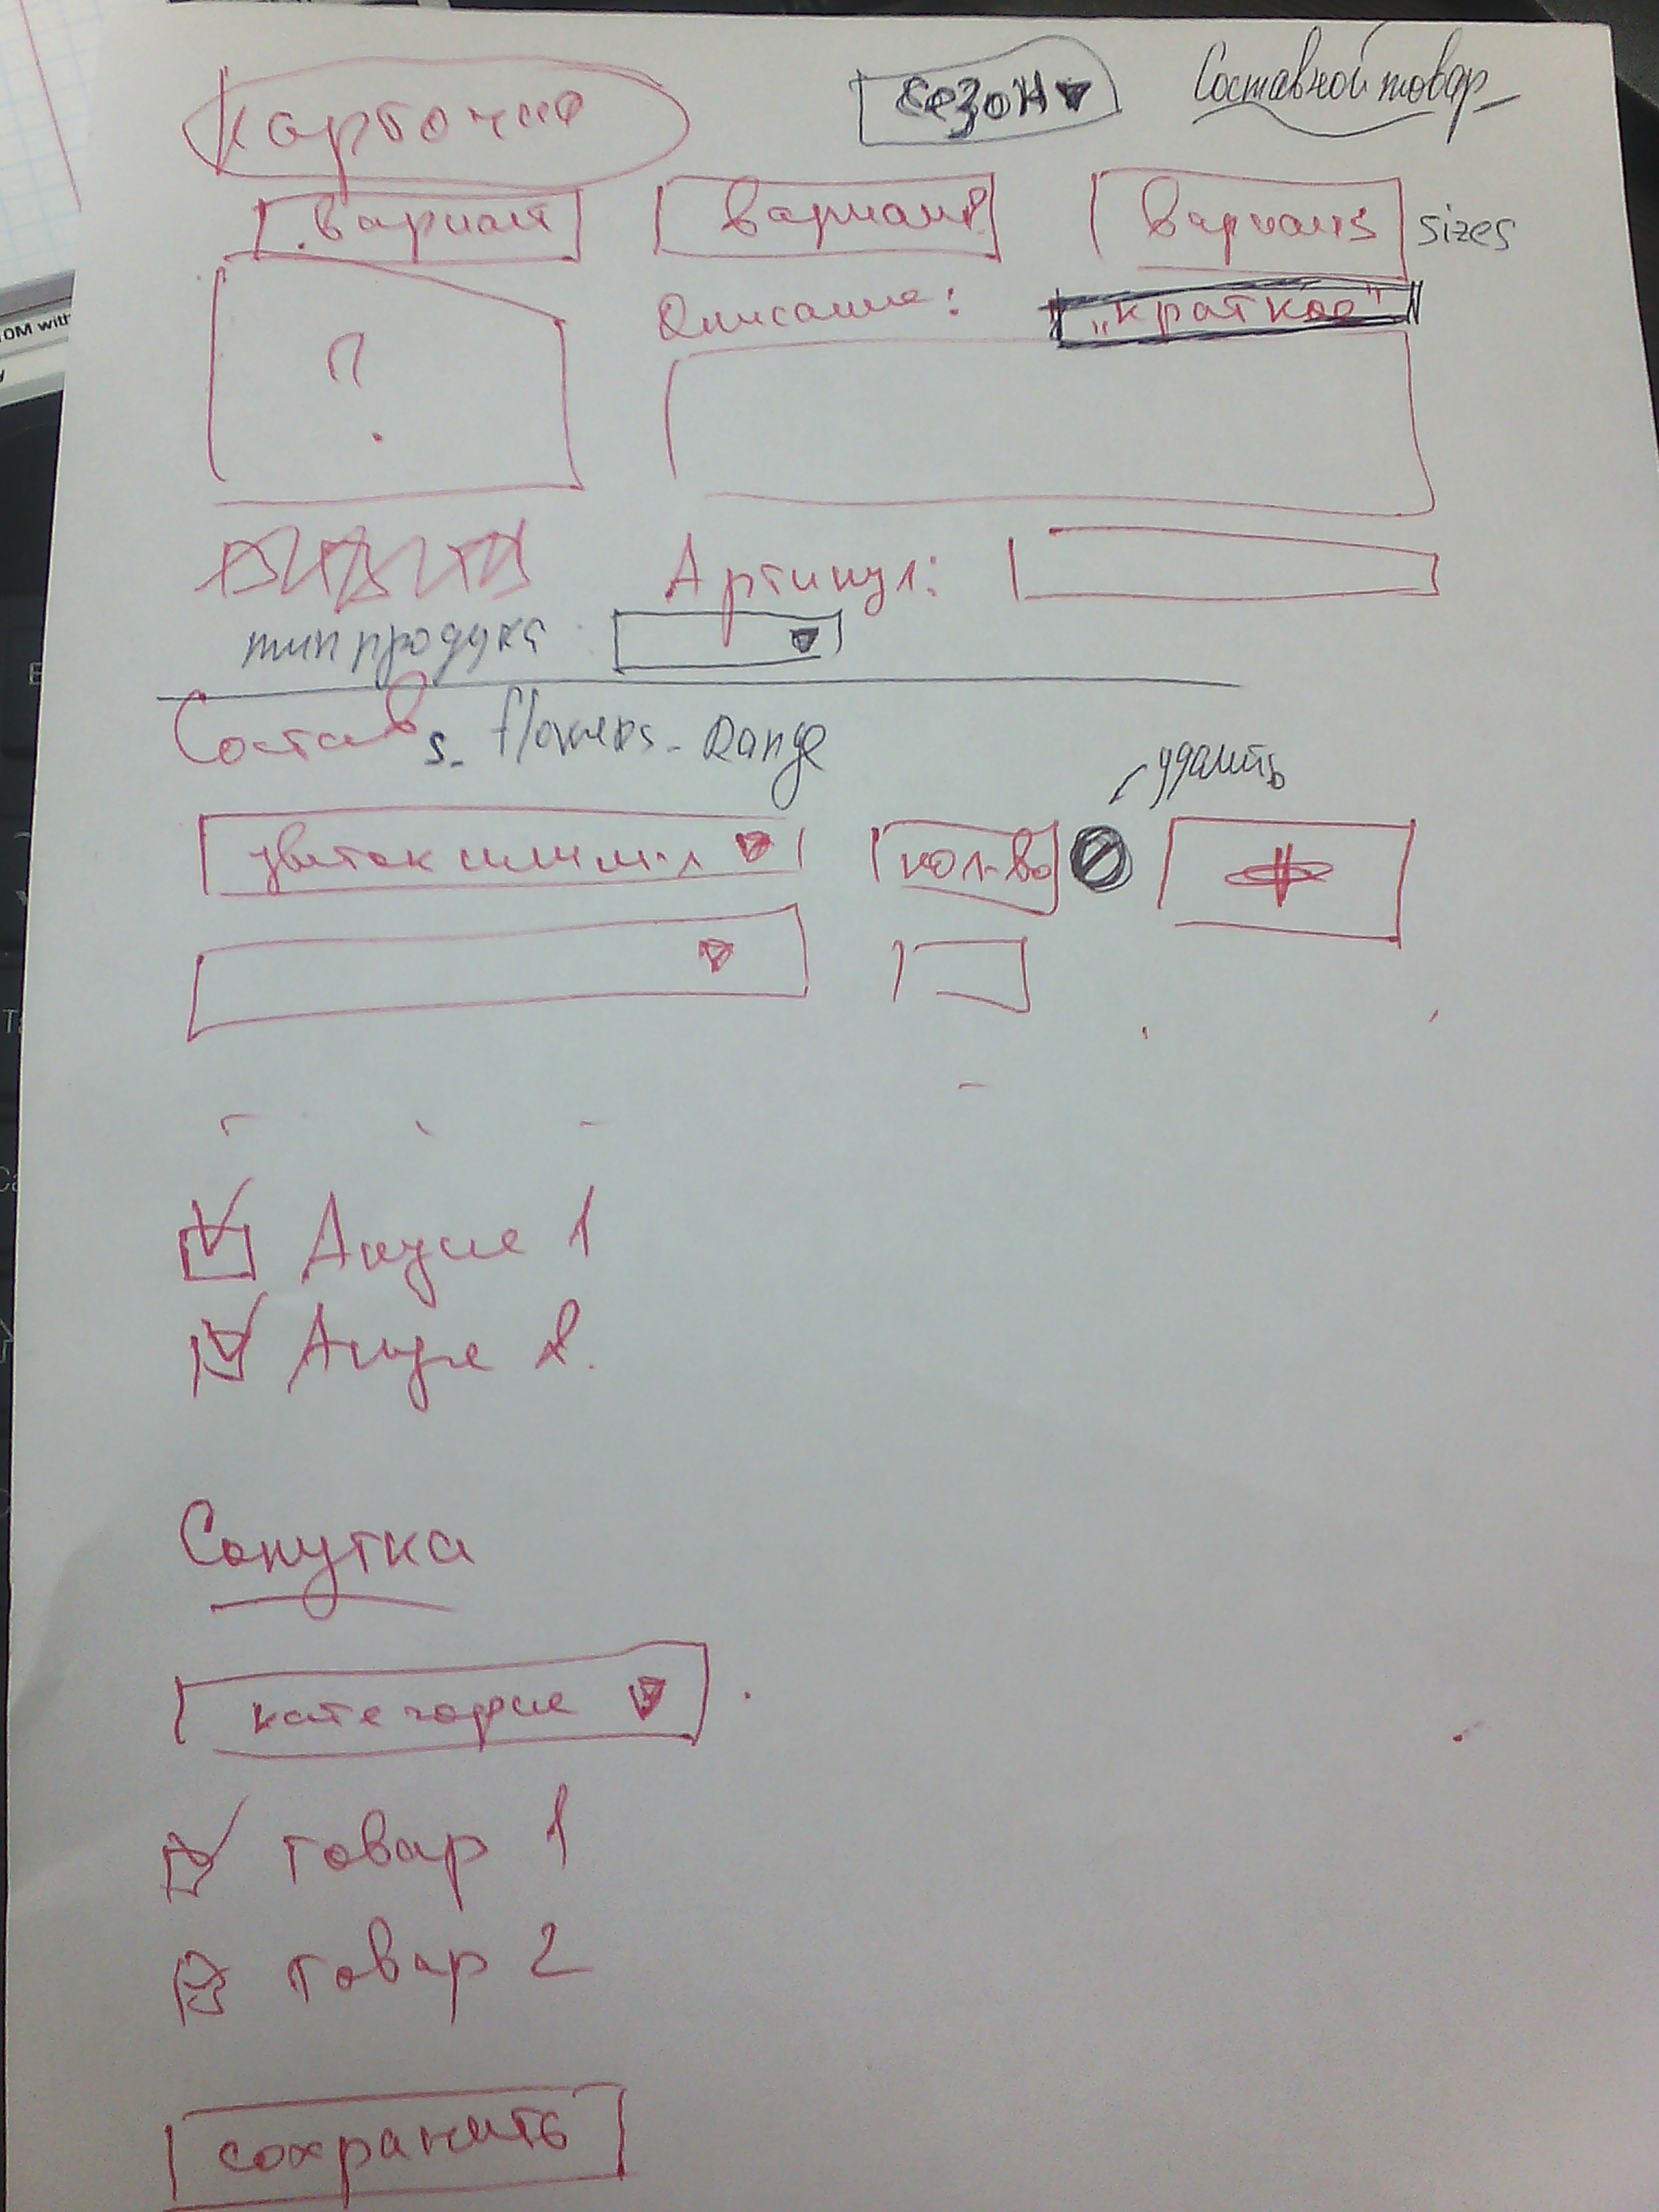 карточка
сезон
Составной товар
вариант
вариант
вариант
sizes
Описание:
„краткое"
?
Артикул:
тип продукта
Состав
s_flowers_Range
удалить
цветок или м-л
кол-во
+
Акция 1
Акция 2.
Сопутка
категория
товар 1
товар 2
сохранить